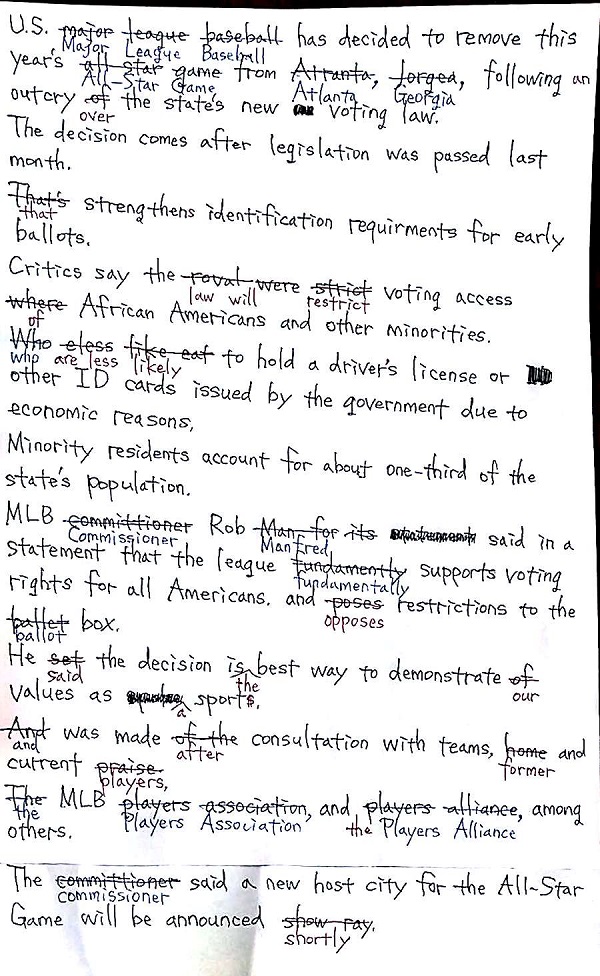 U.S. major league baseball has decided to remove this
Major League Baseball
year's all star game from Atranta, forged, following an
All-Star Game Atlanta Georgia
outcry of the state's new voting law.
over
The decision comes after legislation was passed last
month.
That's strengthens identification requirments for early
that
ballots.
Critics say the roval were strict voting access
law will restrict
where African Americans and other minorities.
of
Who eless like eat to hold a driver's license or
who are less likely
other ID cards issued by the government due to
economic reasons,
Minority residents account for about one-third of the
state's population.
MLB committioner Rob Man for its said in a
Commissioner Manfred
statement that the league fundamently supports voting
fundamentally
rights for all Americans. and poses restrictions to the
opposes
ballet box.
ballot
He set the decision is best way to demonstrate of
said the our
values as sports.
a
And was made of the consultation with teams, home and
and after former
current praise.
players,
The MLB players association, and players alliance, among
the Players Association the Players Alliance
others.
The committioner said a new host city for the All-Star
commissioner
Game will be announced show ray.
shortly